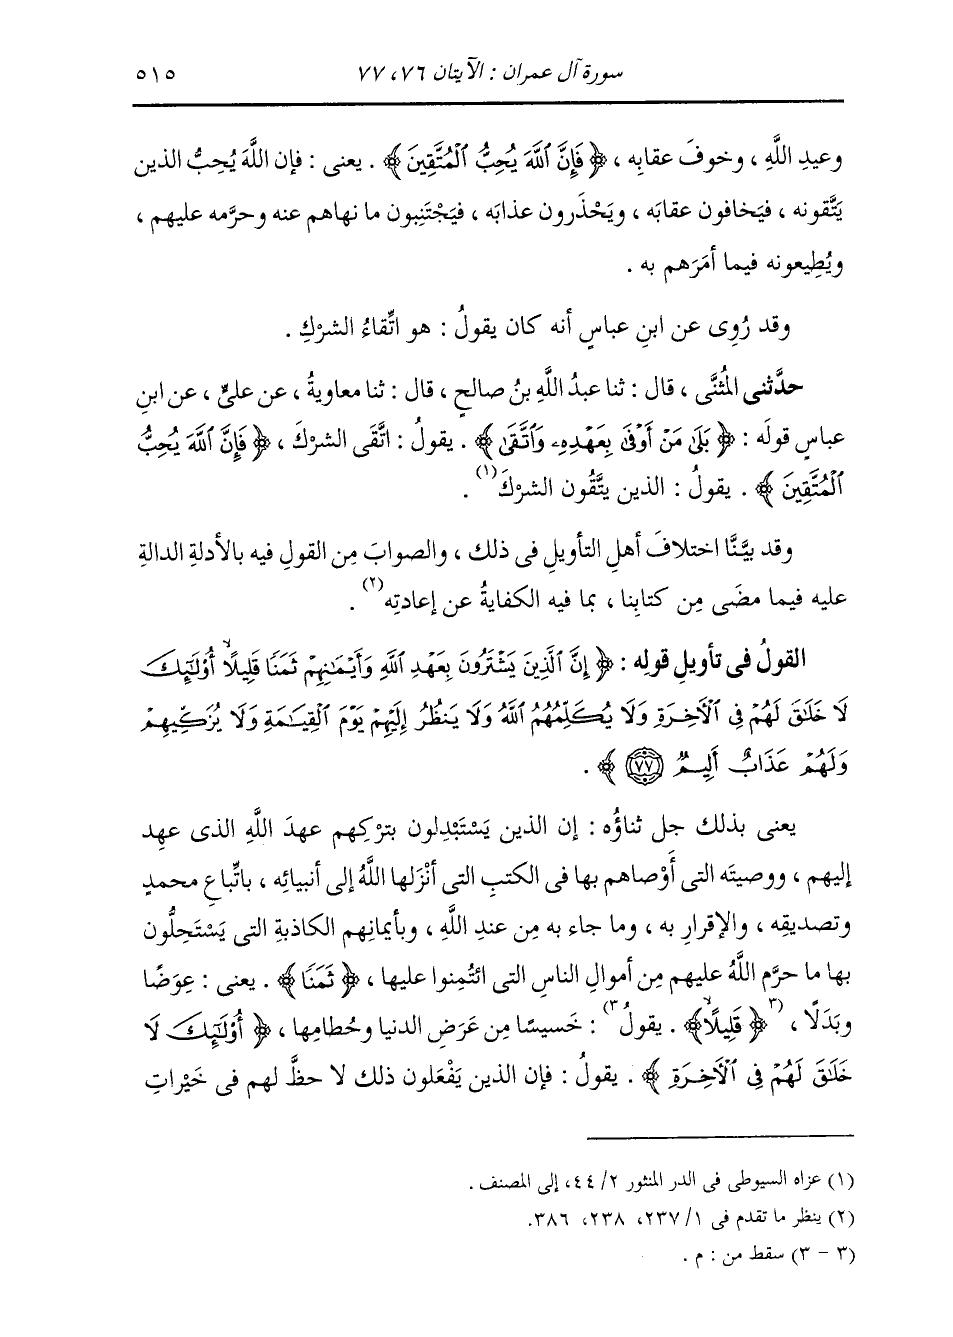 سورة آل عمران : الآيتان ٧٦، ٧٧ ٥١٥
وعيدِ اللَّهِ ، وخوفَ عقابِه ، ﴿ فَإِنَّ ٱللَّهَ يُحِبُّ ٱلْمُتَّقِينَ ﴾ . يعنى : فإن اللَّهَ يُحِبُّ الذين
يَتَّقونه ، فيَخافون عقابَه ، ويَحْذَرون عذابَه ، فيَجْتَنِبون ما نهاهم عنه وحرَّمه عليهم ،
ويُطِيعونه فيما أمَرَهم به .
وقد رُوِى عن ابنِ عباسٍ أنه كان يقولُ : هو اتِّقاءُ الشركِ .
حدَّثنى المُثنَّى ، قال : ثنا عبدُ اللَّهِ بنُ صالحٍ ، قال : ثنا معاويةُ ، عن علىٍّ ، عن ابنِ
عباسٍ قولَه : ﴿ بَلَىٰ مَنْ أَوْفَىٰ بِعَهْدِهِۦ وَٱتَّقَىٰ ﴾ . يقولُ : اتَّقَى الشركَ ، ﴿ فَإِنَّ ٱللَّهَ يُحِبُّ
ٱلْمُتَّقِينَ ﴾ . يقولُ : الذين يتَّقُون الشركَ(١) .
وقد بيَّنَّا اختلافَ أهلِ التأويلِ فى ذلك ، والصوابَ مِن القولِ فيه بالأدلةِ الدالةِ
عليه فيما مضَى مِن كتابِنا ، بما فيه الكفايةُ عن إعادتِه(٢) .
القولُ فى تأويلِ قولِه : ﴿ إِنَّ ٱلَّذِينَ يَشْتَرُونَ بِعَهْدِ ٱللَّهِ وَأَيْمَـٰنِهِمْ ثَمَنًا قَلِيلًا ۙ أُو۟لَـٰٓئِكَ
لَا خَلَـٰقَ لَهُمْ فِى ٱلْـَٔاخِرَةِ وَلَا يُكَلِّمُهُمُ ٱللَّهُ وَلَا يَنظُرُ إِلَيْهِمْ يَوْمَ ٱلْقِيَـٰمَةِ وَلَا يُزَكِّيهِمْ
وَلَهُمْ عَذَابٌ أَلِيمٌ ٧٧ ﴾ .
يعنى بذلك جل ثناؤُه : إن الذين يَسْتَبْدِلون بتركِهم عهدَ اللَّهِ الذى عهِد
إليهم ، ووصيتَه التى أَوْصاهم بها فى الكتبِ التى أنْزَلها اللَّهُ إلى أنبيائِه ، باتِّباعِ محمدٍ
وتصديقِه ، والإقرارِ به ، وما جاء به مِن عندِ اللَّهِ ، وبأيمانِهم الكاذبةِ التى يَسْتَحِلُّون
بها ما حرَّم اللَّهُ عليهم مِن أموالِ الناسِ التى ائتُمِنوا عليها ، ﴿ ثَمَنًا ﴾ . يعنى : عِوَضًا
وبَدَلًا ، (٣﴿ قَلِيلًا ۙ ﴾ . يقولُ٣) : خَسيسًا مِن عَرَضِ الدنيا وحُطامِها ، ﴿ أُو۟لَـٰٓئِكَ لَا
خَلَـٰقَ لَهُمْ فِى ٱلْـَٔاخِرَةِ ﴾ . يقولُ : فإن الذين يَفْعَلون ذلك لا حظَّ لهم فى خَيْراتِ
(١) عزاه السيوطى فى الدر المنثور ٢/ ٤٤، إلى المصنف .
(٢) ينظر ما تقدم فى ١/ ٢٣٧، ٢٣٨، ٣٨٦.
(٣ - ٣) سقط من : م .